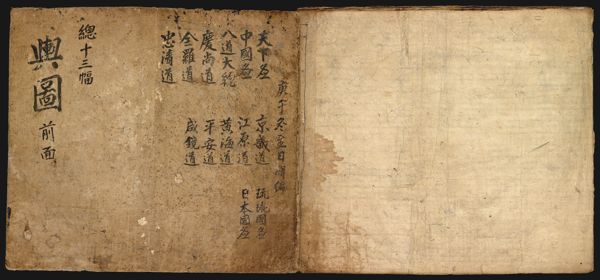 庚午冬至日
天下啚 京畿道 琉球國啚
中國啚 江原道 日本國啚
八道大統 黃海道
慶尚道 平安道
全羅道 咸鏡道
忠清道
總十三幅
輿圖 前面